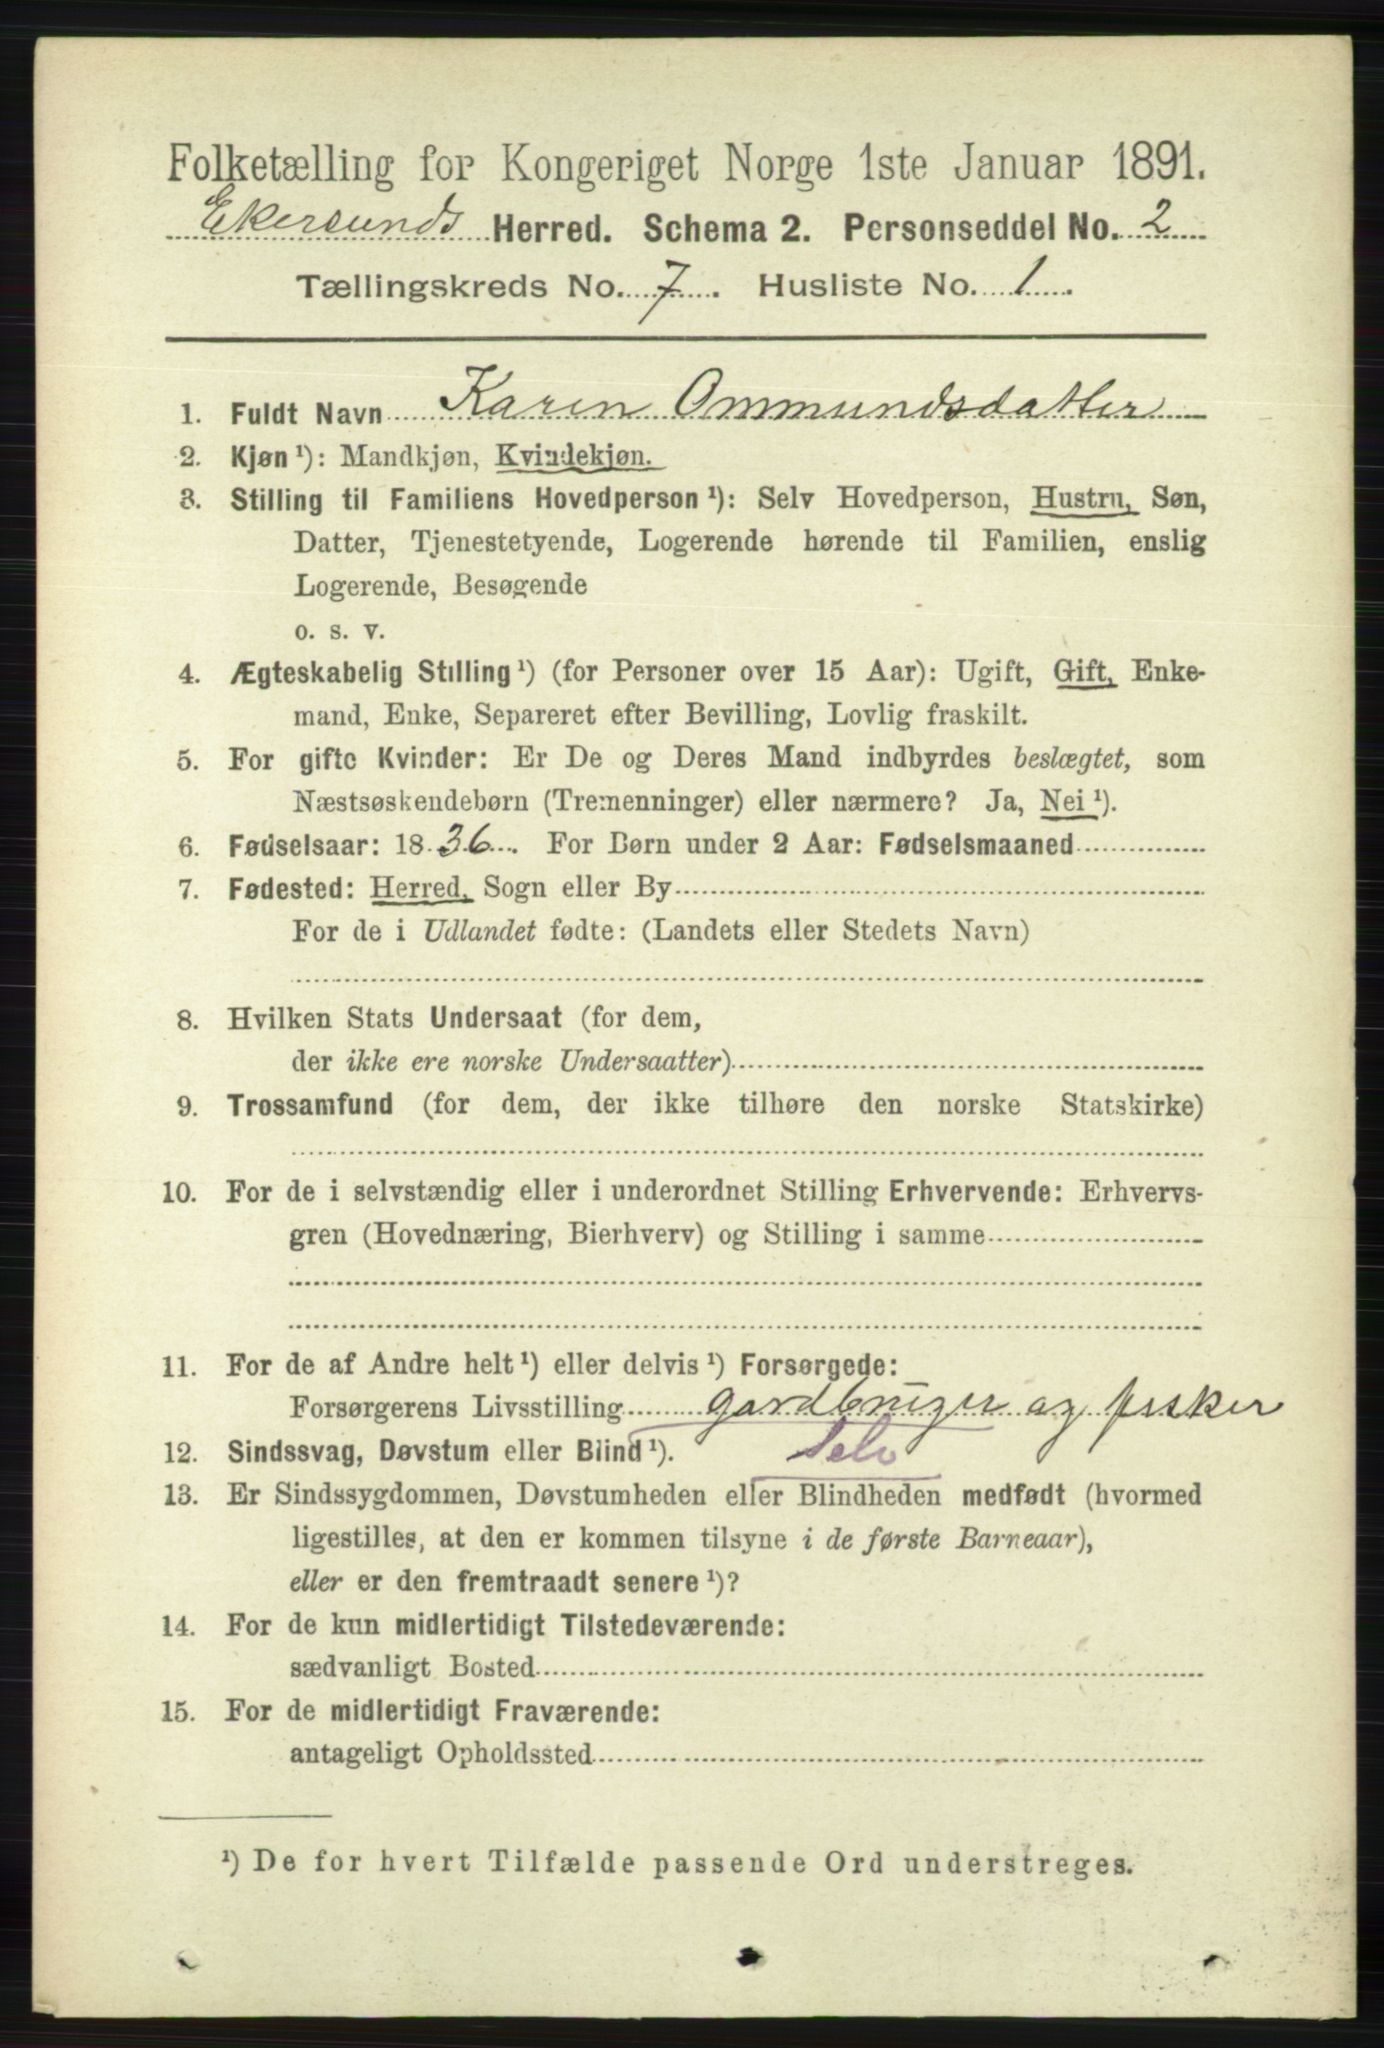 Folketælling for Kongeriget Norge 1ste Januar 1891.
Ekersunds Herred. Schema 2. Personseddel No. 2
Tællingskreds No. 7. Husliste No. 1.
1. Fuldt Navn Karen Ommundsdatter
2. Kjøn ¹): Mandkjøn, Kvindekjøn.
3. Stilling til Familiens Hovedperson ¹): Selv Hovedperson, Hustru, Søn,
Datter, Tjenestetyende, Logerende hørende til Familien, enslig
Logerende, Besøgende
o. s. v.
4. Ægteskabelig Stilling ¹) (for Personer over 15 Aar): Ugift, Gift, Enke-
mand, Enke, Separeret efter Bevilling, Lovlig fraskilt.
5. For gifte Kvinder: Er De og Deres Mand indbyrdes beslægtet, som
Næstsøskendebørn (Tremenninger) eller nærmere? Ja, Nei ¹).
6. Fødselsaar: 1836. For Børn under 2 Aar: Fødselsmaaned
7. Fødested: Herred, Sogn eller By
For de i Udlandet fødte: (Landets eller Stedets Navn)
8. Hvilken Stats Undersaat (for dem,
der ikke ere norske Undersaatter)
9. Trossamfund (for dem, der ikke tilhøre den norske Statskirke)
10. For de i selvstændig eller i underordnet Stilling Erhvervende: Erhvervs-
gren (Hovednæring, Bierhverv) og Stilling i samme
11. For de af Andre helt ¹) eller delvis ¹) Forsørgede:
Forsørgerens Livsstilling gardbruger og fisker
12. Sindssvag, Døvstum eller Blind ¹). Selv
13. Er Sindssygdommen, Døvstumheden eller Blindheden medfødt (hvormed
ligestilles, at den er kommen tilsyne i de første Barneaar),
eller er den fremtraadt senere ¹)?
14. For de kun midlertidigt Tilstedeværende:
sædvanligt Bosted
15. For de midlertidigt Fraværende:
antageligt Opholdssted
¹) De for hvert Tilfælde passende Ord understreges.